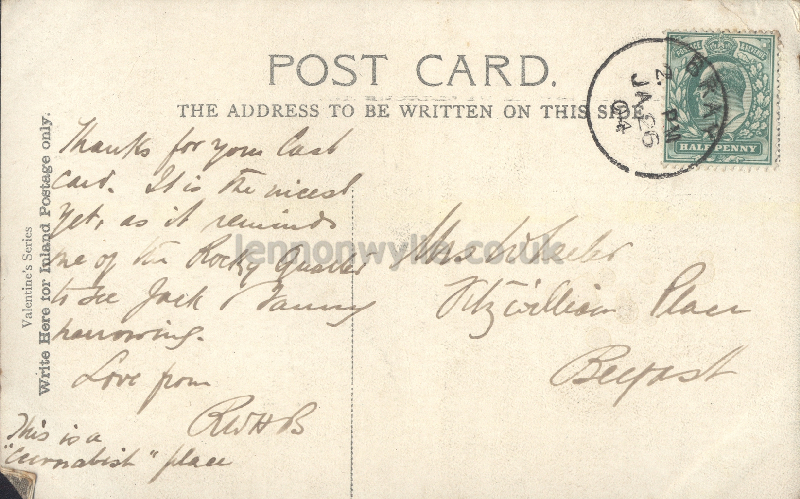 POST CARD.
THE ADDRESS TO BE WRITTEN ON THIS SIDE.
Valentine's Series
Write Here for Inland Postage only.
Thanks for your last
card. It is the nicest
yet, as it reminds
me of the Rocky Quarter
to see Jack &
harrowing.
Love from
RWHB
This is a
" place
Mrs Wheeler
Fitzwilliam Place
Belfast
BRAY
2. PM
JA 26
04
POSTAGE & REVENUE
HALFPENNY
lennonwylie.co.uk